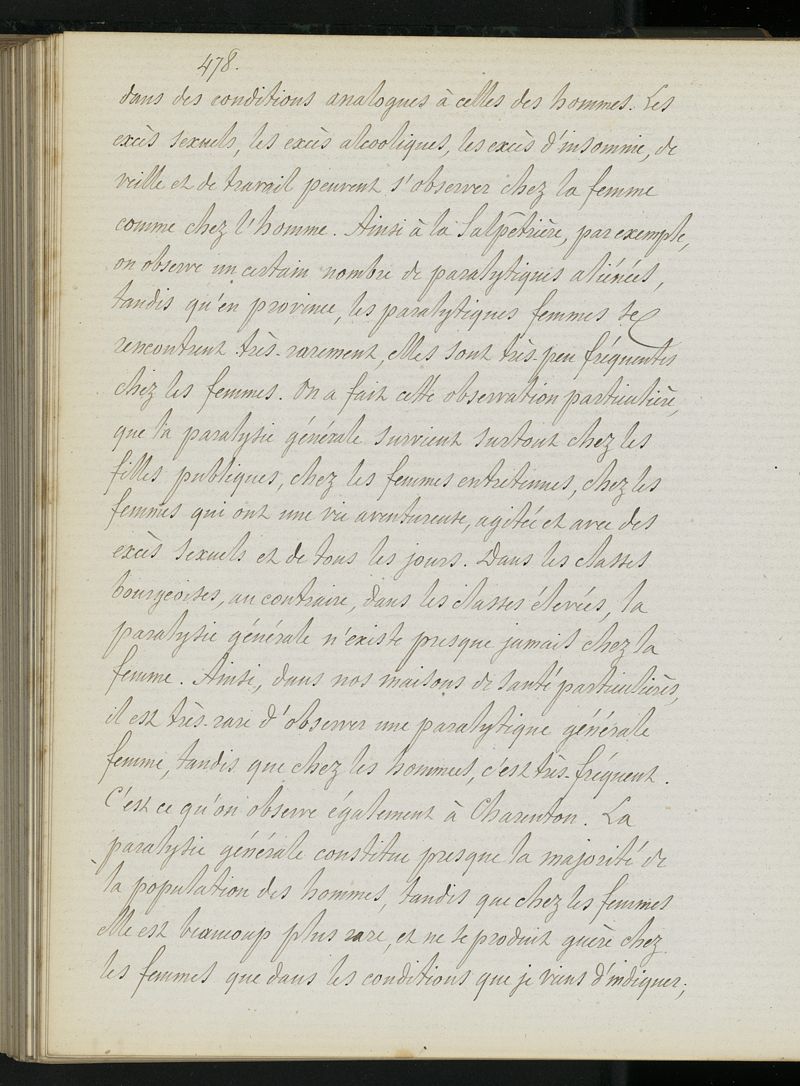 478.
dans des conditions analogues à celles des hommes. Les
excès sexuels, les excès alcooliques, les excès d'insomnie, de
veille et de travail peuvent s'observer chez la femme
comme chez l'homme. Ainsi à la Salpêtrière, par exemple,
on observe un certain nombre de paralytiques aliénées,
tandis qu'en province, les paralytiques femmes se
rencontrent très-rarement, elles sont très-peu fréquentes
chez les femmes. On a fait cette observation particulière,
que la paralysie générale survient surtout chez les
filles publiques, chez les femmes entretenues, chez les
femmes qui ont une vie aventureuse, agitée et avec des
excès sexuels et de tous les jours. Dans les classes
bourgeoises, au contraire, dans les classes élevées, la
paralysie générale n'existe presque jamais chez la
femme. Ainsi, dans nos maisons de santé particulières,
il est très-rare d'observer une paralytique générale
femme, tandis que chez les hommes, c'est très-fréquent.
C'est ce qu'on observe également à Charenton. La
paralysie générale constitue presque la majorité de
la population des hommes, tandis que chez les femmes
elle est beaucoup plus rare, et ne se produit guère chez
les femmes que dans les conditions que je viens d'indiquer;